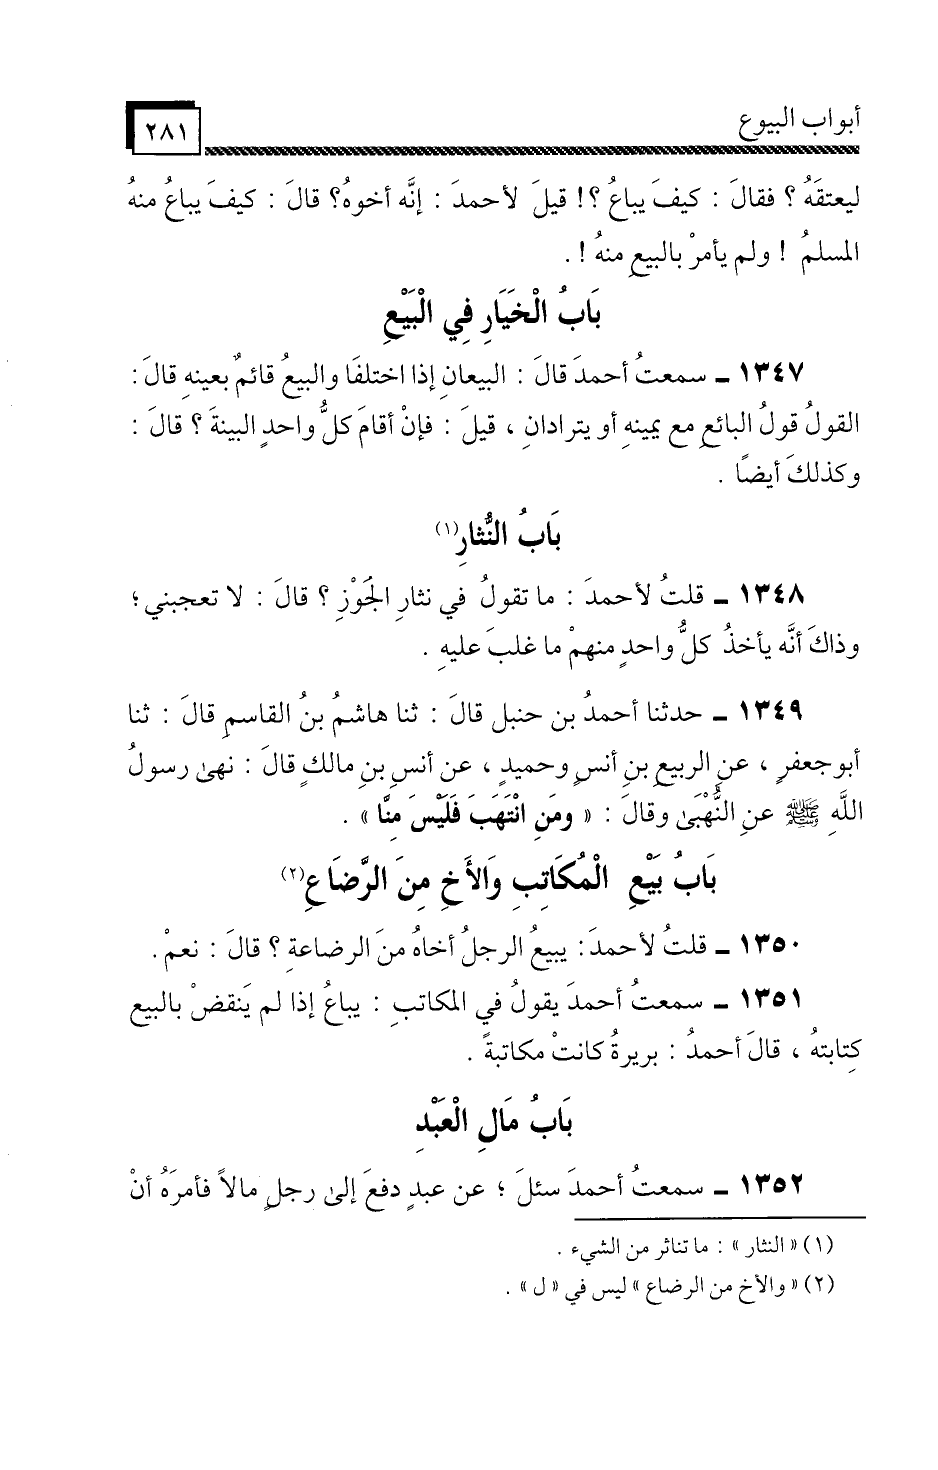 أبواب البيوع
٢٨١
ليعتقَهُ ؟ فقالَ : كيفَ يباعُ ؟! قيلَ لأحمدَ : إنَّه أخوهُ؟ قالَ : كيفَ يباعُ منهُ
المسلمُ ! ولم يأمرْ بالبيعِ منهُ ! .
بَابُ الْخَيَارِ فِي الْبَيْعِ
١٣٤٧ ـ سمعتُ أحمدَ قالَ : البيعانِ إذا اختلفَا والبيعُ قائمٌ بعينهِ قالَ :
القولُ قولُ البائعِ مع يمينهِ أو يترادانِ ، قيلَ : فإنْ أقامَ كلُّ واحدٍ البينةَ ؟ قالَ :
وكذلكَ أيضًا .
بَابُ النُّثارِ(١)
١٣٤٨ ـ قلتُ لأحمدَ : ما تقولُ في نثارِ الجَوْزِ ؟ قالَ : لا تعجبني ؛
وذاكَ أنَّه يأخذُ كلُّ واحدٍ منهمْ ما غلبَ عليهِ .
١٣٤٩ ـ حدثنا أحمدُ بن حنبل قالَ : ثنا هاشمُ بنُ القاسمِ قالَ : ثنا
أبوجعفرٍ ، عنِ الربيعِ بنِ أنسٍ وحميدٍ ، عن أنسِ بنِ مالكٍ قالَ : نهىٰ رسولُ
اللَّهِ ﷺ عنِ النُّهْبَىٰ وقالَ : « ومَنِ انْتَهَبَ فَلَيْسَ مِنَّا » .
بَابُ بَيْعِ الْمُكَاتِبِ وَالأَخِ مِنَ الرَّضَاعِ(٢)
١٣٥٠ ـ قلتُ لأحمدَ: يبيعُ الرجلُ أخاهُ منَ الرضاعةِ ؟ قالَ : نعمْ .
١٣٥١ ـ سمعتُ أحمدَ يقولُ في المكاتبِ : يباعُ إذا لم يَنقضْ بالبيعِ
كِتابتهُ ، قالَ أحمدُ : بريرةُ كانتْ مكاتبةً .
بَابُ مَالِ الْعَبْدِ
١٣٥٢ ـ سمعتُ أحمدَ سئلَ ؛ عن عبدٍ دفعَ إلىٰ رجلٍ مالاً فأمرَهُ أنْ
(١) « النثار » : ما تناثر من الشيء .
(٢) « والأخ من الرضاع » ليس في « ل » .